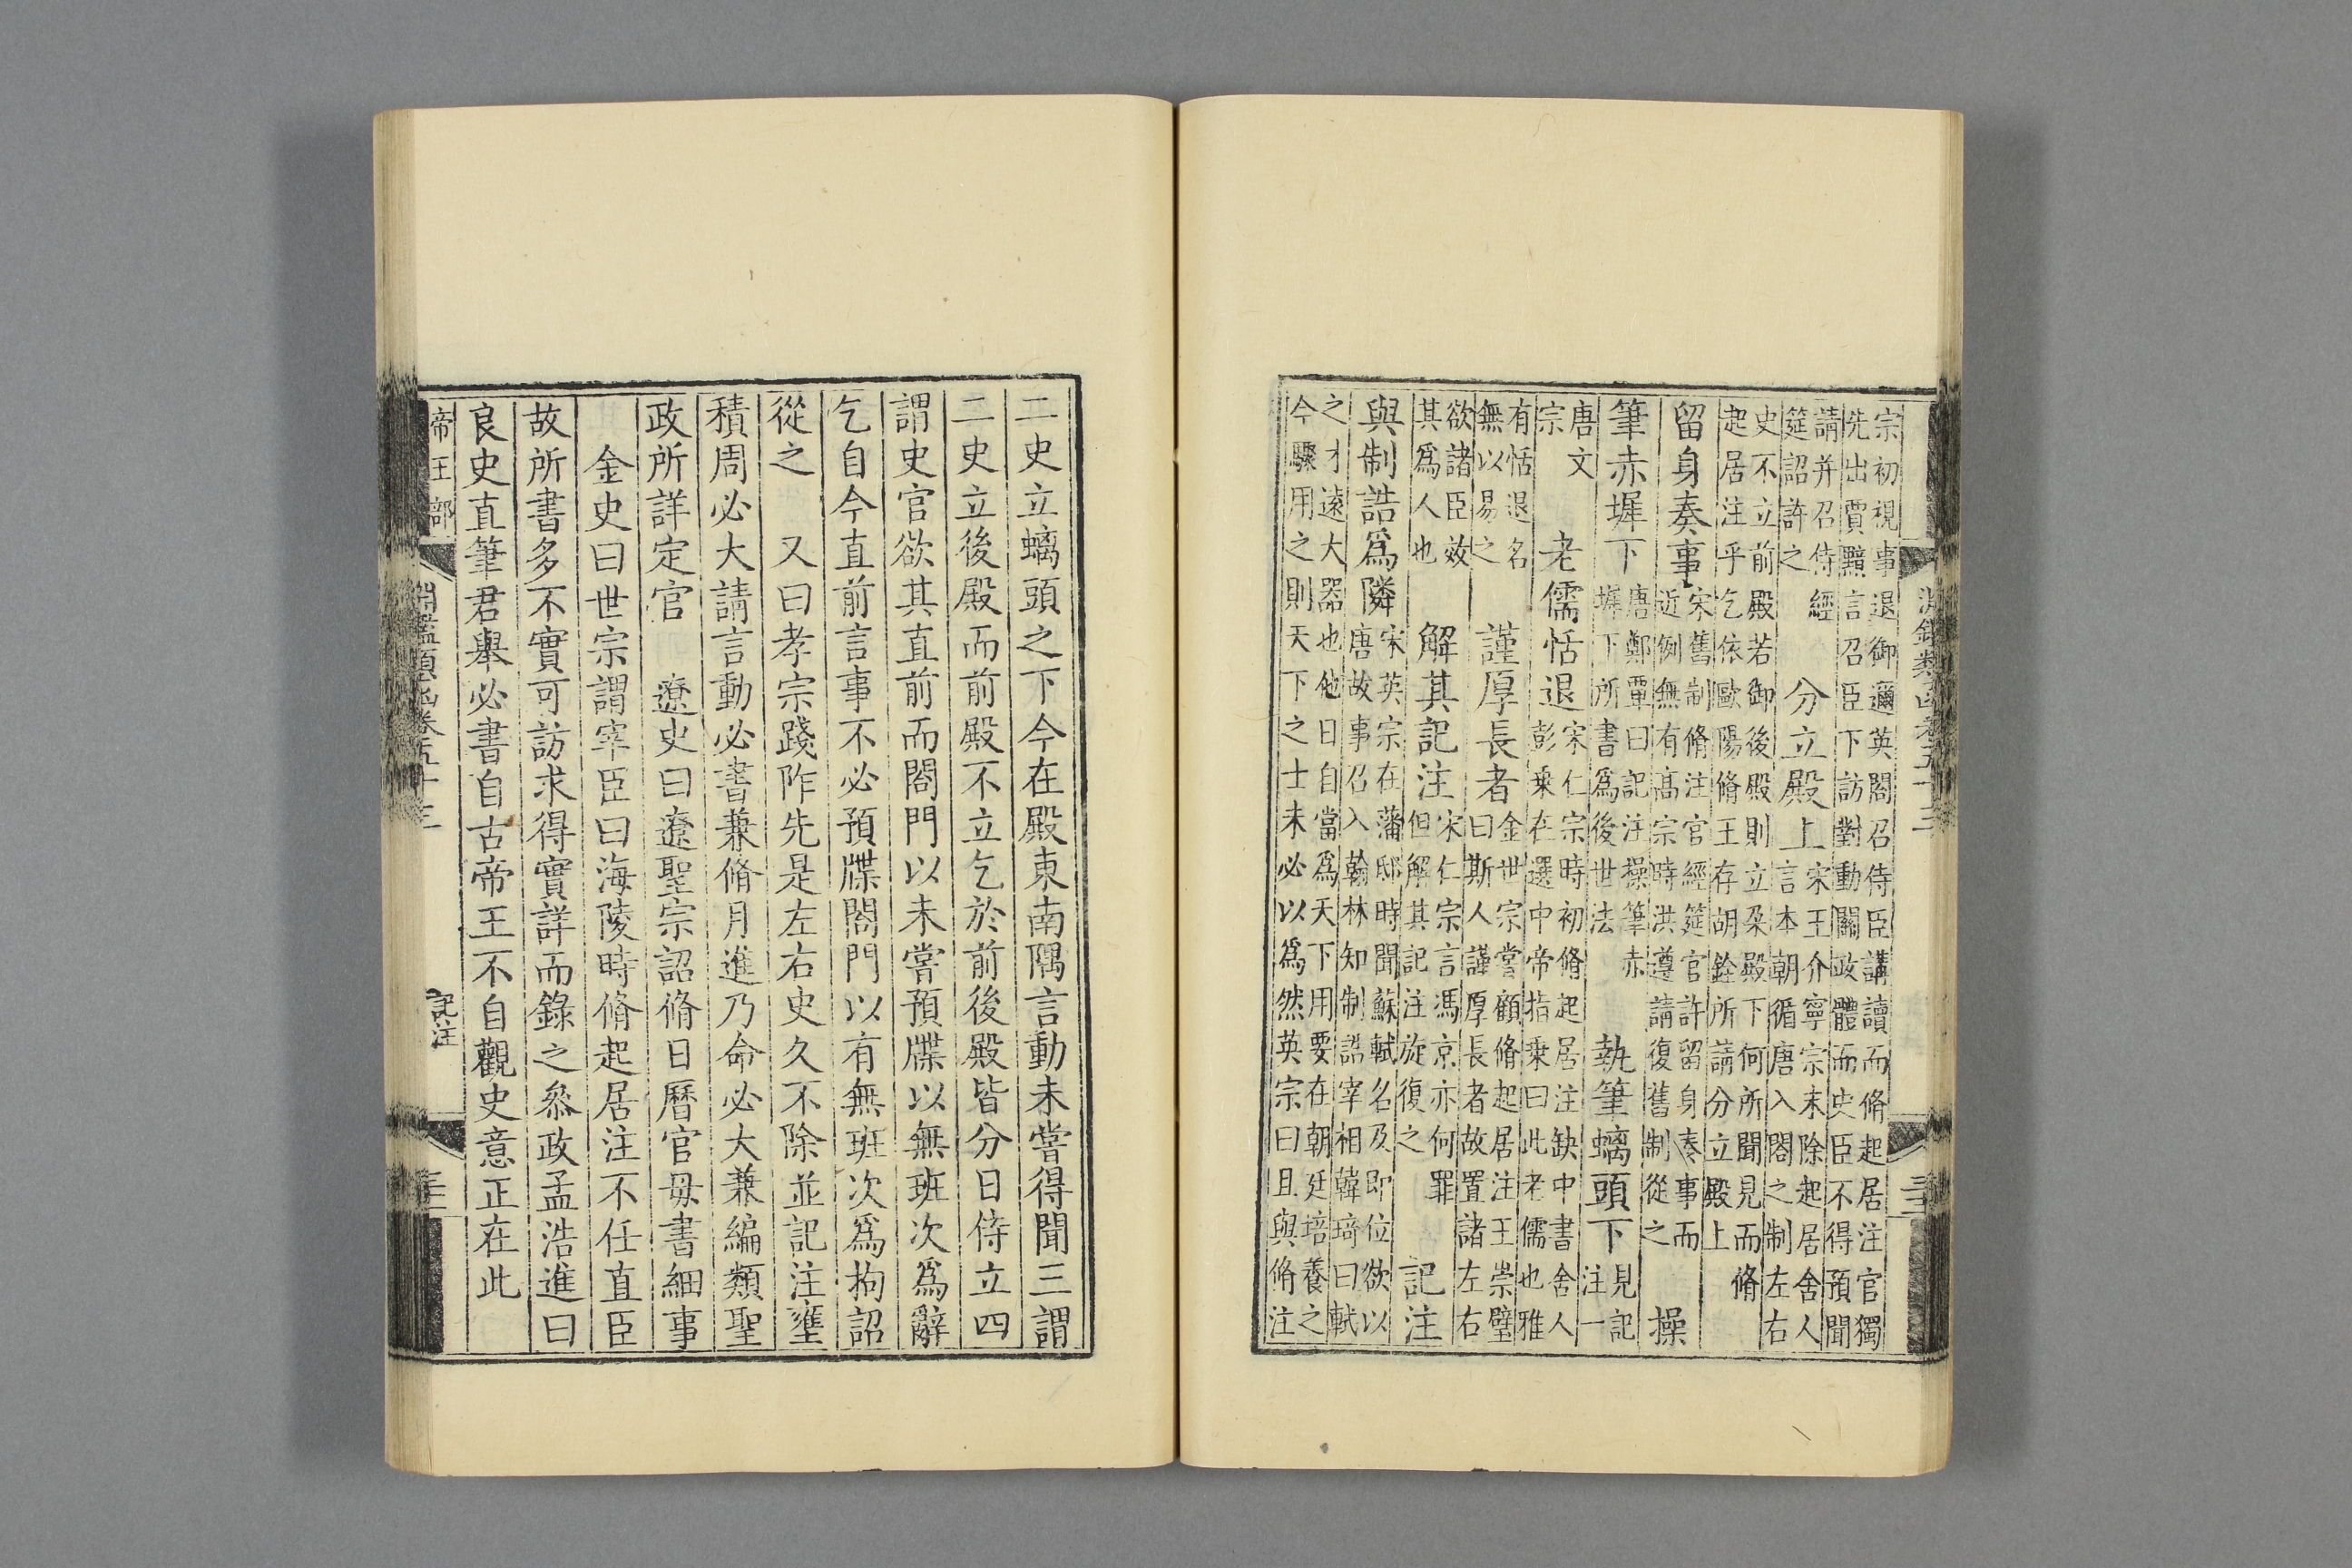 淵鑑類函卷五十三
宗初視事退御邇英閣召侍臣講讀而脩起居注官獨
先出賈黯言召臣下訪對動關政體而史臣不得預聞
請并召侍經
筵詔許之
分立殿上
宋王介寧宗末除起居舍人
言本朝循唐入閣之制左右
史不立前殿若御後殿則立朶殿下何所聞見而脩
起居注乎乞依歐陽脩王存胡銓所請分立殿上
留身奏事
宋舊制脩注官經筵官許留身奏事而
近例無有高宗時洪遵請復舊制從之
操
筆赤墀下
唐鄭覃曰記注操筆赤
墀下所書爲後世法
執筆螭頭下
見記
注一
唐文
宗
老儒恬退
宋仁宗時初脩起居注缺中書舍人
彭乗在選中帝指乗曰此老儒也雅
有恬退名
無以易之
謹厚長者
金世宗嘗顧脩起居注王崇璧
曰斯人謹厚長者故置諸左右
欲諸臣效
其爲人也
解其記注
宋仁宗言馮京亦何罪
但解其記注旋復之
記注
與制誥爲隣
宋英宗在藩邸時聞蘇軾名及即位欲以
唐故事召入翰林知制誥宰相韓琦曰軾
之才遠大器也他日自當爲天下用要在朝廷培養之
今驟用之則天下之士未必以爲然英宗曰且與脩注
二史立螭頭之下今在殿東南隅言動未嘗得聞三謂
二史立後殿而前殿不立乞於前後殿皆分日侍立四
謂史官欲其直前而閤門以未嘗預牒以無班次爲辭
乞自今直前言事不必預牒閤門以有無班次爲拘詔
從之　又曰孝宗踐阼先是左右史久不除並記注壅
積周必大請言動必書兼脩月進乃命必大兼編類聖
政所詳定官　遼史曰遼聖宗詔脩日曆官毋書細事
金史曰世宗謂宰臣曰海陵時脩起居注不任直臣
故所書多不實可訪求得實詳而錄之叅政孟浩進曰
良史直筆君舉必書自古帝王不自觀史意正在此
帝王部
淵鑑類函卷五十三
記注